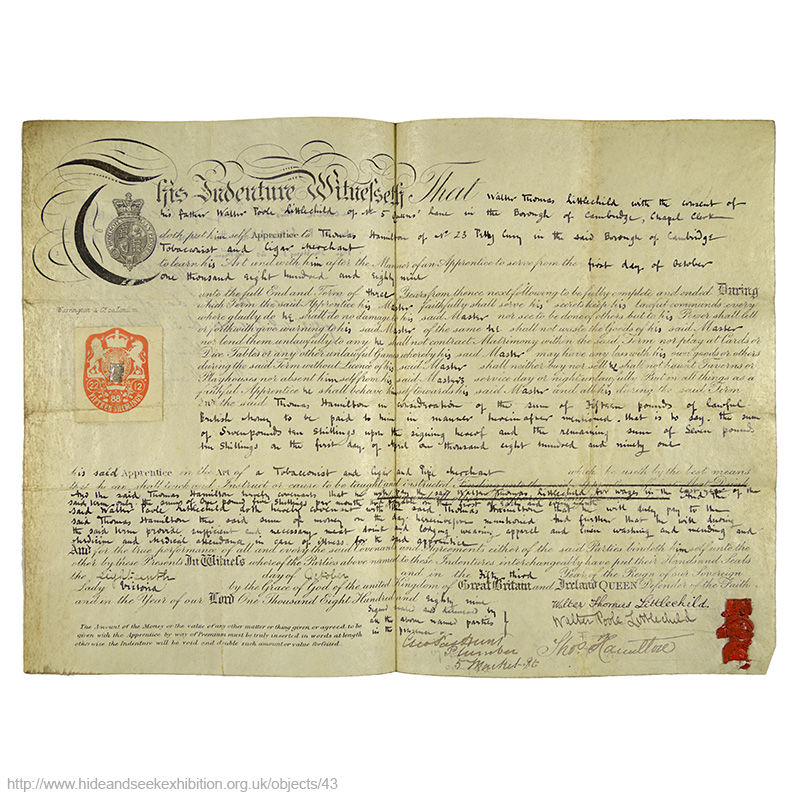 This Indenture Witnesseth That Walter Thomas Littlechild with the consent of
his father Walter Poole Littlechild of No 5 Queens' Lane in the Borough of Cambridge, Chapel Clerk
doth put himself Apprentice to Thomas Hamilton of No 23 Petty Cury in the said Borough of Cambridge
Tobacconist and Cigar Merchant
to learn his Art and with him after the Manner of an Apprentice to serve from the first day of October
one thousand eight hundred and eighty nine
unto the full End and Term of three Years from thence next following to be fully complete and ended During
which Term the said Apprentice his Master faithfully shall serve his secrets keep his lawful commands every
where gladly do he shall do no damage to his said Master nor see to be done of others but to his Power shall tell
or forthwith give warning to his said Master of the same he shall not waste the Goods of his said Master
nor lend them unlawfully to any he shall not contract Matrimony within the said Term nor play at Cards or
Dice Tables or any other unlawful Games whereby his said Master may have any loss with his own goods or others
during the said Term without Licence of his said Master shall neither buy nor sell he shall not haunt Taverns or
Playhouses nor absent himself from his said Master's service day or night unlawfully But in all things as a
faithful Apprentice he shall behave himself towards his said Master and all his during the said Term
And the said Thomas Hamilton in consideration of the sum of Fifteen pounds of lawful
British Money to be paid to him in manner hereinafter mentioned, that is to say, the sum
of Seven pounds ten shillings upon the signing hereof and the remaining sum of Seven pounds
ten shillings on the first day of April one thousand eight hundred and ninety one
Waterlow & Sons London
22 12
88
his said Apprentice in the Art of a Tobacconist and Cigar and Pipe Merchant which he useth by the best means
that he can shall teach and Instruct or cause to be taught and instructed
And the said Thomas Hamilton hereby covenants that he will pay the said Walter Thomas Littlechild for wages in the of the
said term only the sum of One pound five shillings per month
said Walter Poole Littlechild doth hereby covenant with the said Thomas Hamilton that he will duly pay to the
said Thomas Hamilton the said sums of money on the days hereinbefore mentioned And further that he will during
the said term provide sufficient and necessary meat drink and lodging wearing apparel and linen washing and mending and
medicine and medical attendance, in case of illness, for the said apprentice
And for the true performance of all and every the said Covenants and Agreements either of the said Parties bindeth himself unto the
other by these Presents In Witness whereof the Parties above named to these Indentures interchangeably have put their Hands and Seals
the day of October and in the Fifty third Year of the Reign of our Sovereign
Lady Victoria by the Grace of God of the united Kingdom of Great Britain and Ireland QUEEN Defender of the Faith
and in the Year of our Lord One Thousand Eight Hundred and eighty nine
Signed sealed and delivered by
the above named parties
in the presence of
Plumber
5 Market St
Walter Thomas Littlechild.
Walter Poole Littlechild
Thos Hamilton
The Amount of the Money or the value of any other matter or thing given or agreed to be
given with the Apprentice by way of Premium must be truly inserted in words at length
otherwise the Indenture will be void and double such amount or value forfeited.
http://www.hideandseekexhibition.org.uk/objects/43